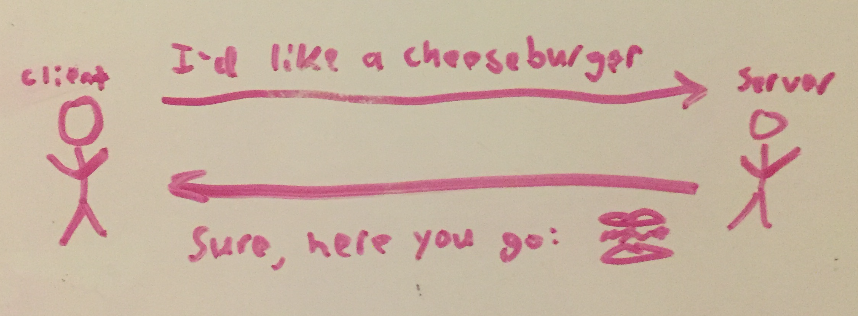 I'd like a cheeseburger
client
Server
Sure, here you go: